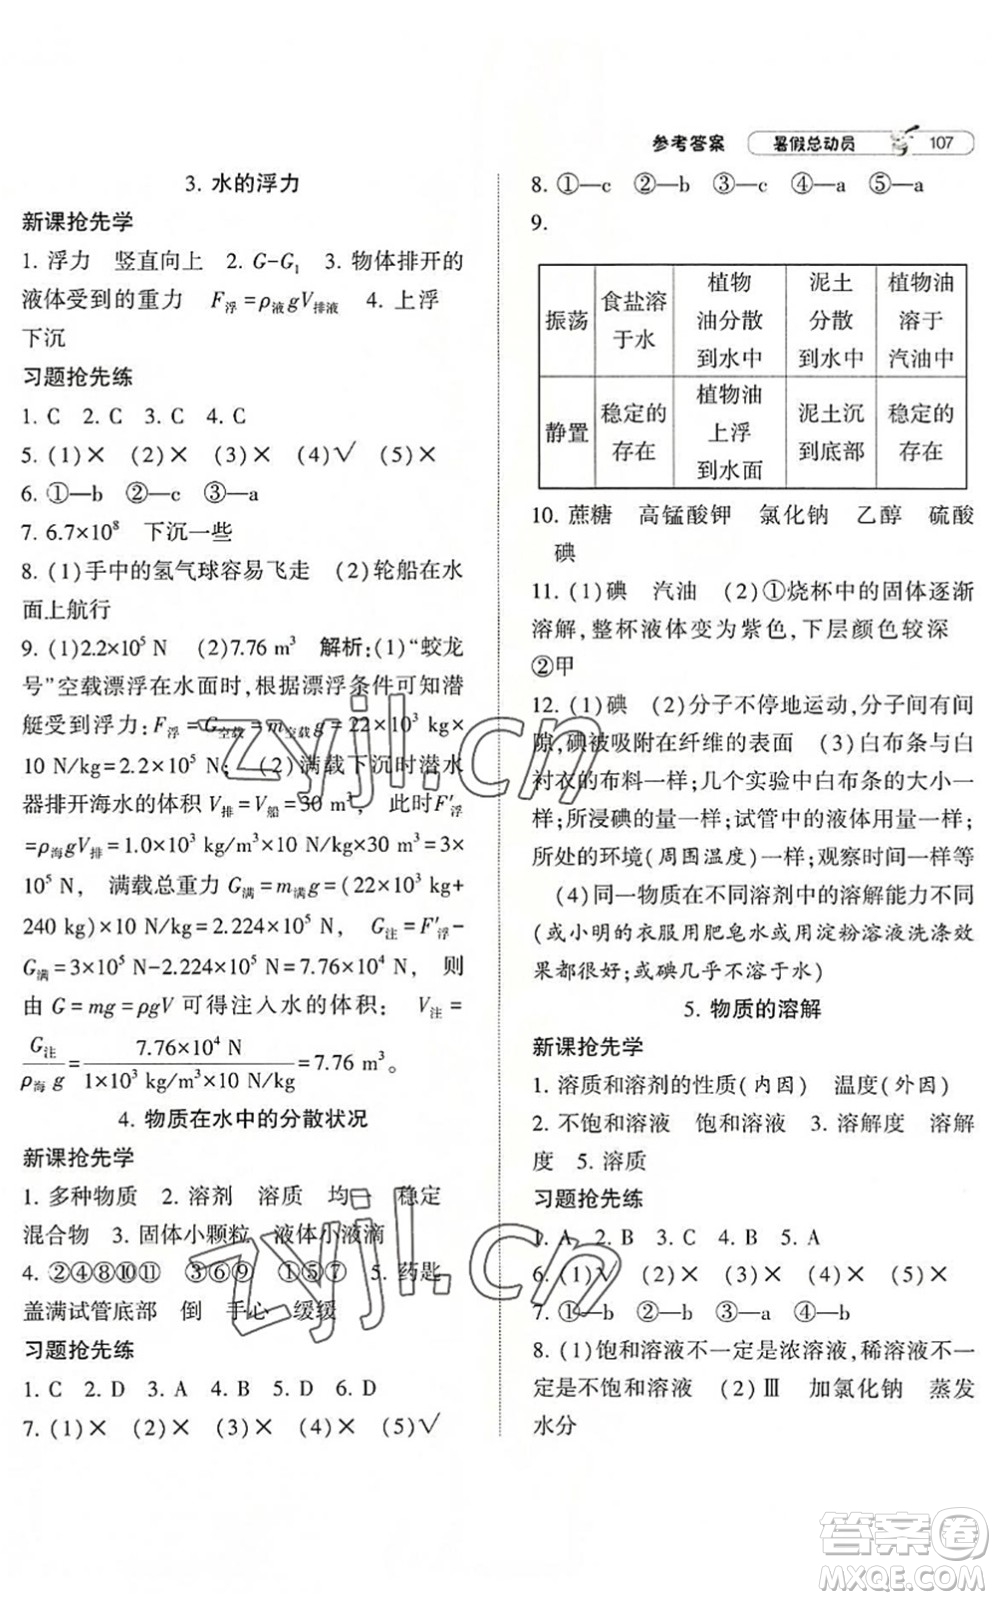 参考答案 暑假总动员 107
3. 水的浮力
新课抢先学
1. 浮力 竖直向上 2. G-G₁ 3. 物体排开的
液体受到的重力 F浮=ρ液gV排液 4. 上浮
下沉
习题抢先练
1. C 2. C 3. C 4. C
5. (1)× (2)× (3)× (4)√ (5)×
6. ①—b ②—c ③—a
7. 6.7×10⁸ 下沉一些
8. (1)手中的氢气球容易飞走 (2)轮船在水
面上航行
9. (1)2.2×10⁵ N (2)7.76 m³ 解析:(1)“蛟龙
号”空载漂浮在水面时,根据漂浮条件可知潜
艇受到浮力:F浮=G空载=m空载g=22×10³ kg×
10 N/kg=2.2×10⁵ N; (2)满载下沉时潜水
器排开海水的体积 V排=V船=30 m³, 此时F′浮
=ρ海gV排=1.0×10³ kg/m³×10 N/kg×30 m³=3×
10⁵ N, 满载总重力 G满=m满g=(22×10³ kg+
240 kg)×10 N/kg=2.224×10⁵ N, G注=F′浮-
G满=3×10⁵ N-2.224×10⁵ N=7.76×10⁴ N, 则
由 G=mg=ρgV 可得注入水的体积: V注=
G注/ρ海g=7.76×10⁴ N/1×10³ kg/m³×10 N/kg=7.76 m³。
4. 物质在水中的分散状况
新课抢先学
1. 多种物质 2. 溶剂 溶质 均一 稳定
混合物 3. 固体小颗粒 液体小液滴
4. ②④⑧⑩⑪ ③⑥⑨ ①⑤⑦ 5. 药匙
盖满试管底部 倒 手心 缓缓
习题抢先练
1. C 2. D 3. A 4. C 5. B 6. D
7. (1)× (2)× (3)× (4)× (5)√
8. ①—c ②—b ③—c ④—a ⑤—a
9.
振荡 食盐溶于水 植物油分散到水中 泥土分散到水中 植物油溶于汽油中
静置 稳定的存在 植物油上浮到水面 泥土沉到底部 稳定的存在
10. 蔗糖 高锰酸钾 氯化钠 乙醇 硫酸
碘
11. (1)碘 汽油 (2)①烧杯中的固体逐渐
溶解,整杯液体变为紫色,下层颜色较深
②甲
12. (1)碘 (2)分子不停地运动,分子间有间
隙,碘被吸附在纤维的表面 (3)白布条与白
衬衣的布料一样;几个实验中白布条的大小一
样;所浸碘的量一样;试管中的液体用量一样;
所处的环境(周围温度)一样;观察时间一样等
(4)同一物质在不同溶剂中的溶解能力不同
(或小明的衣服用肥皂水或用淀粉溶液洗涤效
果都很好;或碘几乎不溶于水)
5. 物质的溶解
新课抢先学
1. 溶质和溶剂的性质(内因) 温度(外因)
2. 不饱和溶液 饱和溶液 3. 溶解度 溶解
度 5. 溶质
习题抢先练
1. A 2. B 3. C 4. D 5. A
6. (1)√ (2)× (3)× (4)× (5)×
7. ①—b ②—b ③—a ④—b
8. (1)饱和溶液不一定是浓溶液,稀溶液不一
定是不饱和溶液 (2)Ⅲ 加氯化钠 蒸发
水分
zyjl.cn
zyjl.cn
答案卷
MXQE.COM